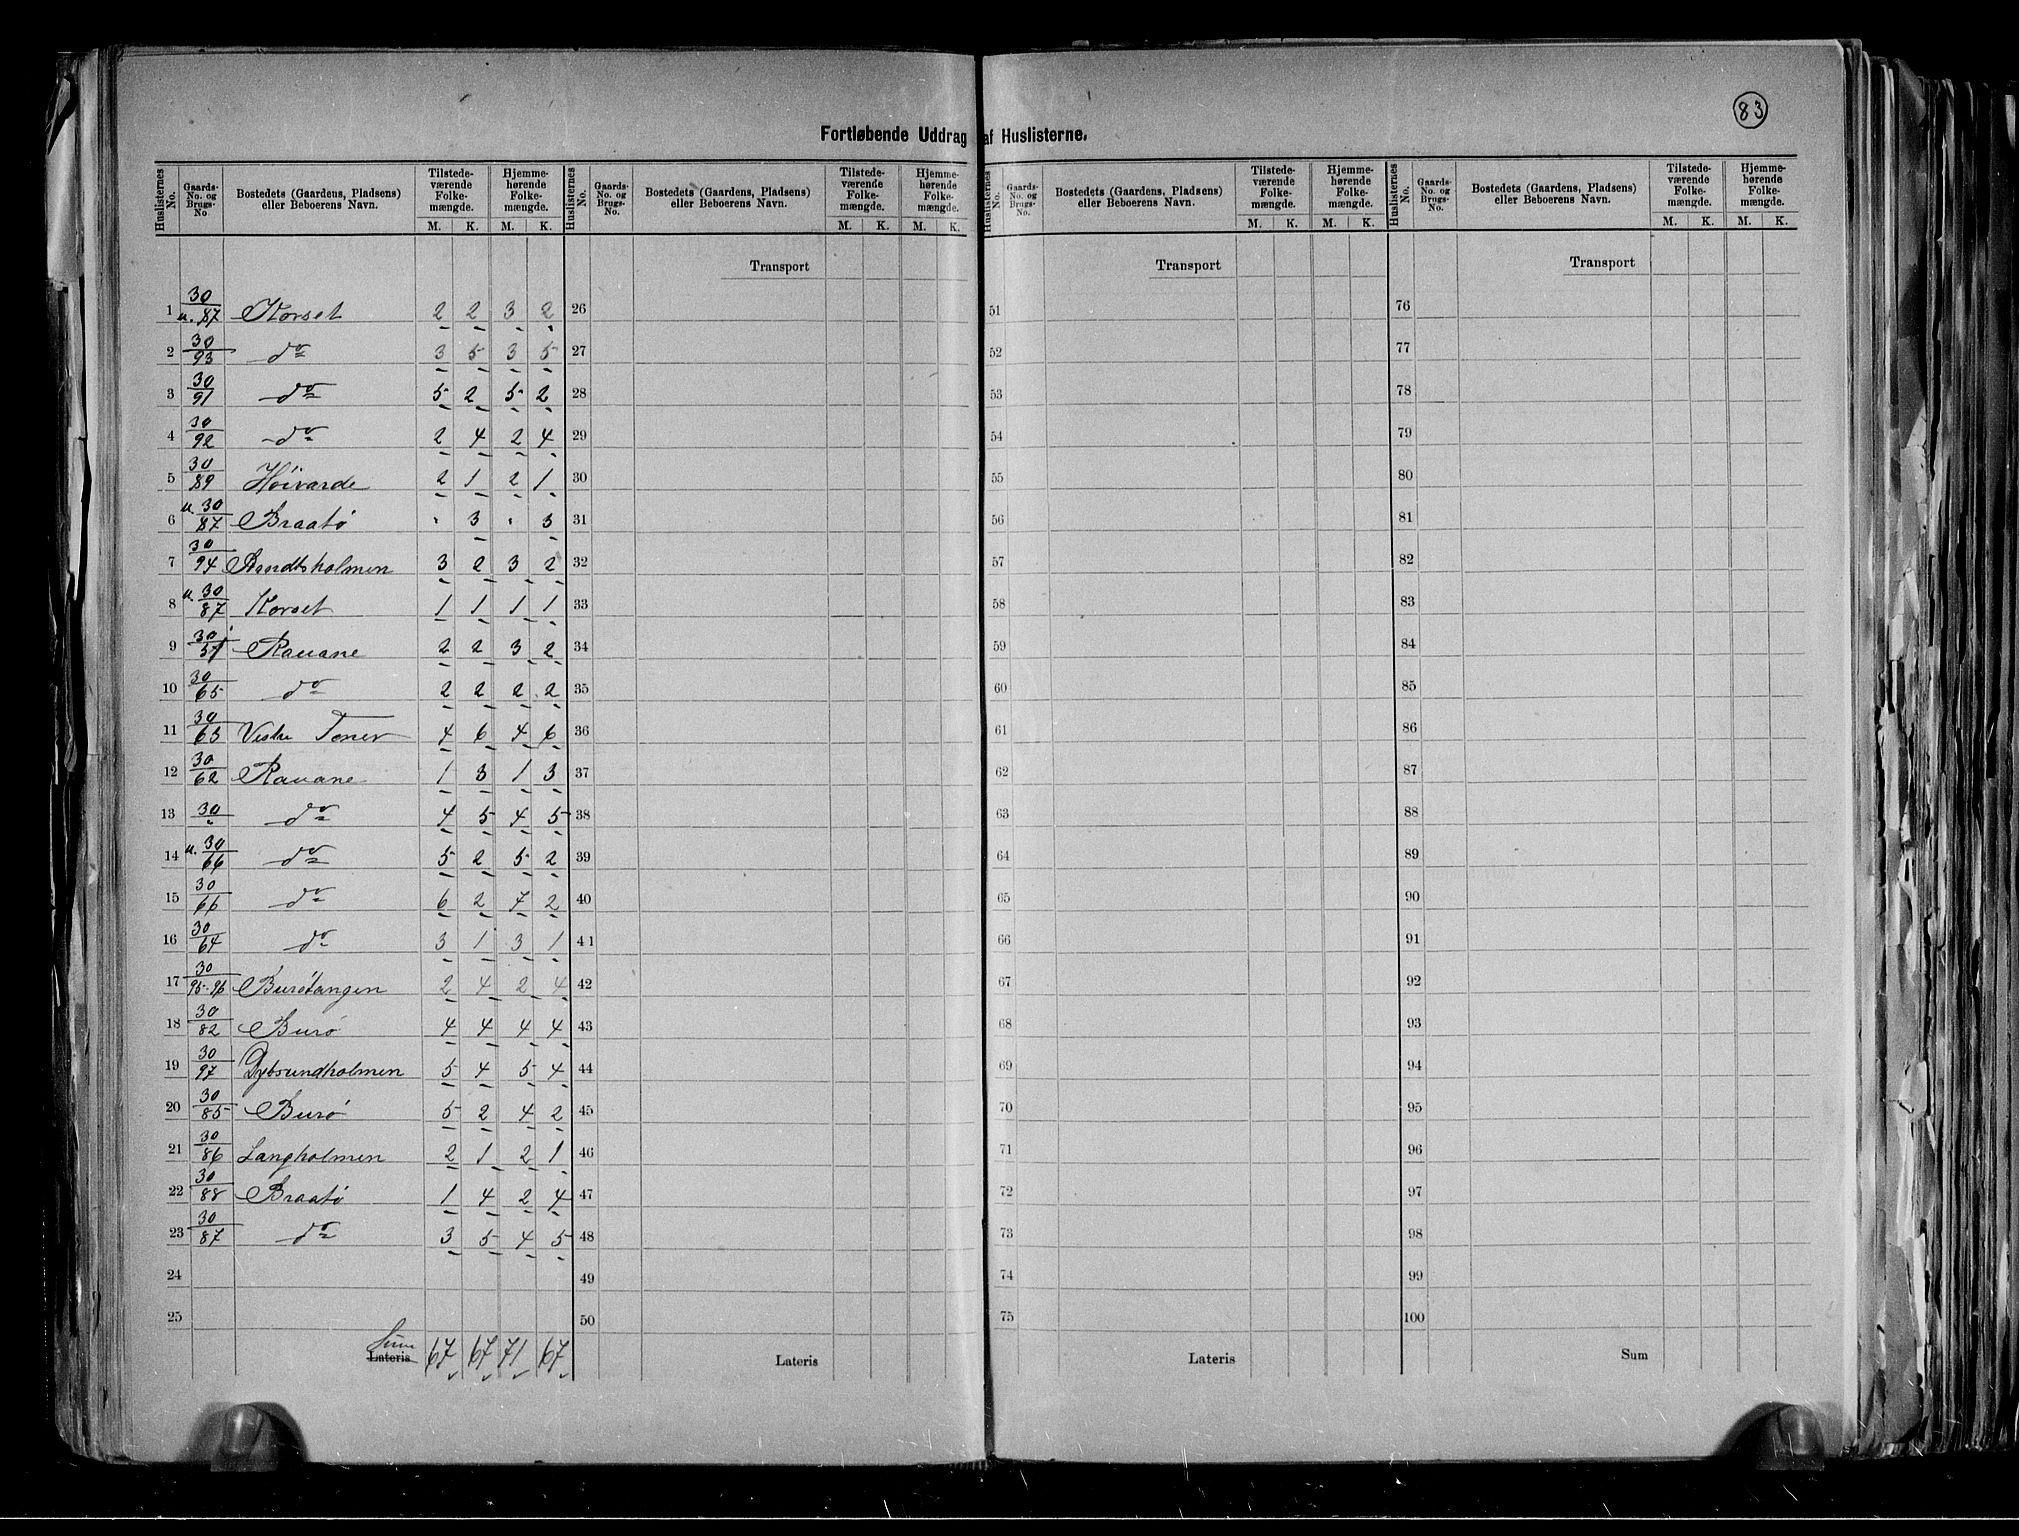 83
Fortløbende Uddrag af Huslisterne.
Huslisternes No. | Gaards-No. og Brugs-No | Bostedets (Gaardens, Pladsens) eller Beboerens Navn. | Tilstedeværende Folkemængde. M. K. | Hjemmehørende Folkemængde. M. K.
Huslisternes No. | Gaards-No. og Brugs-No. | Bostedets (Gaardens, Pladsens) eller Beboerens Navn. | Tilstedeværende Folkemængde. M. K. | Hjemmehørende Folkemængde. M. K.
Huslisternes No. | Gaards-No. og Brugs-No. | Bostedets (Gaardens, Pladsens) eller Beboerens Navn. | Tilstedeværende Folkemængde. M. K. | Hjemmehørende Folkemængde. M. K.
Huslisternes No. | Gaards-No. og Brugs-No. | Bostedets (Gaardens, Pladsens) eller Beboerens Navn. | Tilstedeværende Folkemængde. M. K. | Hjemmehørende Folkemængde. M. K.
Transport Transport Transport
1 u. 30/87 Korset 2 2 3 2 26 51 76
2 30/93 do 3 5 3 5 27 52 77
3 30/91 do 5 2 5 2 28 53 78
4 30/92 do 2 4 2 4 29 54 79
5 30/89 Høivarde 2 1 2 1 30 55 80
6 u. 30/87 Braatø " 3 " 3 31 56 81
7 30/94 3 2 3 2 32 57 82
8 u. 30/87 Korset 1 1 1 1 33 58 83
9 30/51 Rauane 2 2 3 2 34 59 84
10 30/65 do 2 2 2 2 35 60 85
11 30/63 Vestre 4 6 4 6 36 61 86
12 30/62 Rauane 1 3 1 3 37 62 87
13 30/" do 4 5 4 5 38 63 88
14 u. 30/66 do 5 2 5 2 39 64 89
15 30/66 do 6 2 7 2 40 65 90
16 30/64 do 3 1 3 1 41 66 91
17 30/95-96 Burøtangen 2 4 2 4 42 67 92
18 30/82 Burø 4 4 4 4 43 68 93
19 30/97 Dybsundholmen 5 4 5 4 44 69 94
20 30/85 Burø 5 2 4 2 45 70 95
21 30/86 Langholmen 2 1 2 1 46 71 96
22 30/88 Braatø 1 4 2 4 47 72 97
23 30/87 do 3 5 4 5 48 73 98
24 49 74 99
25 50 75 100
Sum Lateris 67 67 71 67 Lateris Lateris Sum